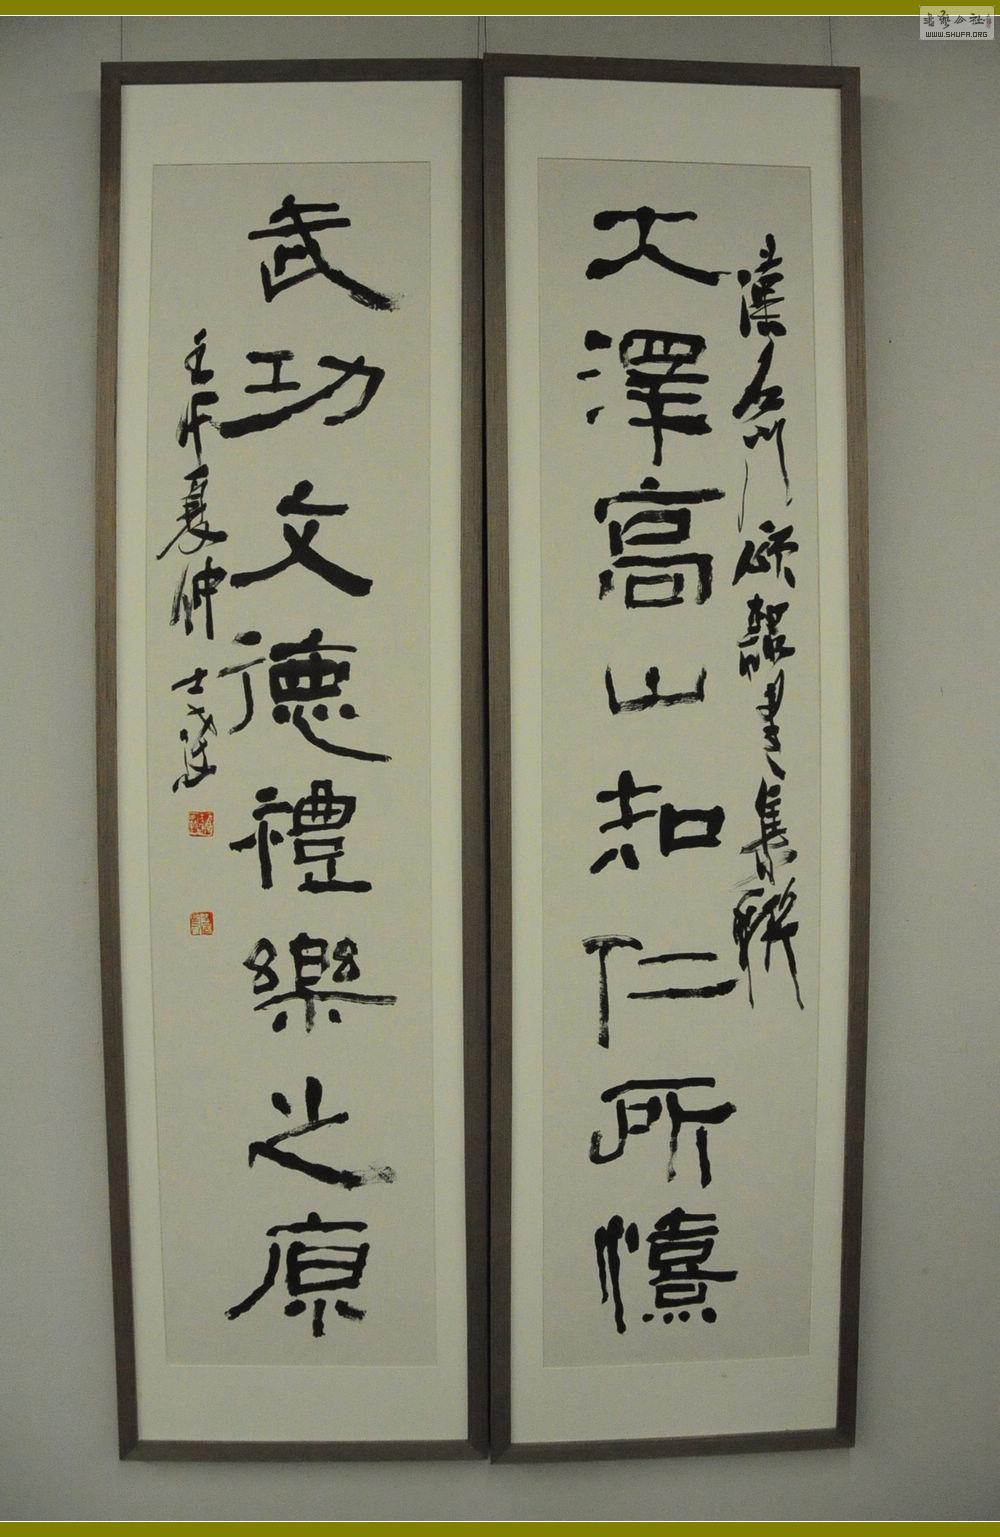 書藝公社
WWW.SHUFA.ORG
漢石門頌書集聯
大澤高山知仁所
武功文德禮樂之原
壬午夏仲